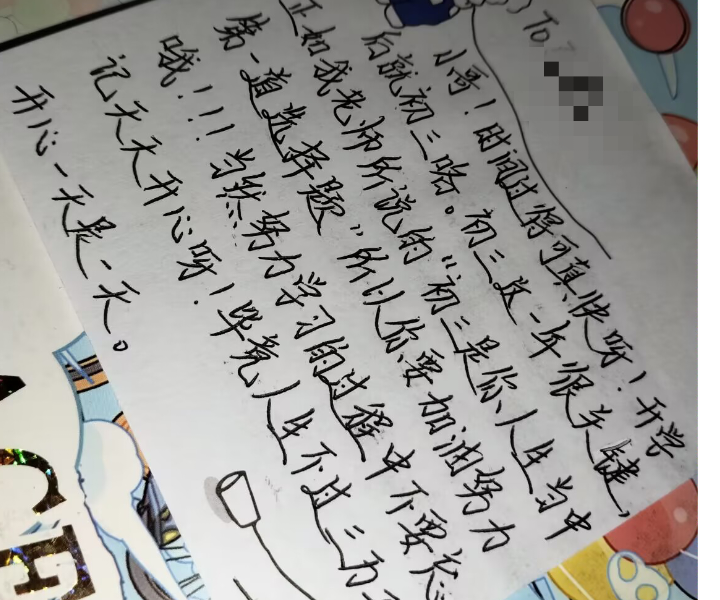 To
小哥！时间过得可真快呀！开学
后就初三咯。初三这一年很关键，
正如我老师所说的“初三是你人生当中
第一道选择题”所以你要加油努力
哦！！！当然努力学习的过程中不要忘
记天天开心呀！毕竟人生不过三万
开心一天是一天。